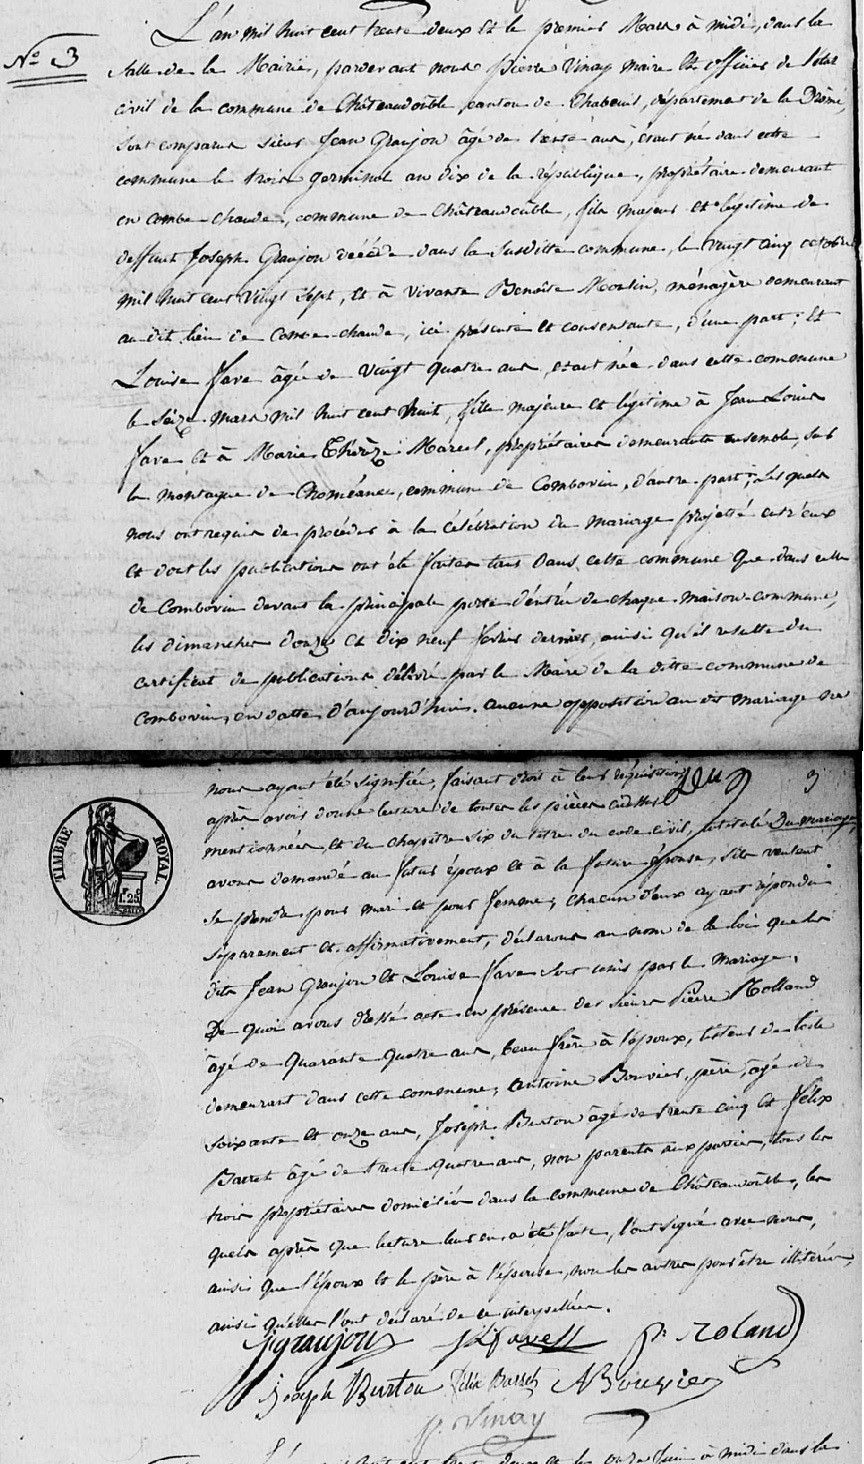 L'an mil huit cent trente deux et le premier Mars à midi, dans la
N.o 3
Salle de la Mairie, pardevant nous pierre Vinay maire et officier de l'état
civil de la commune de Châteaudouble, canton de Chabeuil, département de la Drôme,
Sont comparus sieur Jean Graujon âgé de trente ans, étant né dans cette
commune le trois germinal an dix de la république, propriétaire demeurant
en combe-chaude, commune de Châteaudouble, fils majeur et légitime de
deffunt Joseph Graujon décédé dans la susditte commune, le vingt cinq octobre
mil huit cent vingt sept, et à vivante Benoîte Moulin, ménagère demeurant
au dit lieu de Combe-chaude, ici présente et consentante, d'une part; Et
Louise Fave âgée de vingt quatre ans, étant née dans cette commune
le seize mars mil huit cent huit, fille majeure et légitime à Jean Louis
Fave et à Marie Thérèze Marcel, propriétaires demeurants ensemble, sur
la montagne de Choméane, commune de Combovin, d'autre part; Les quels
nous ont requis de procéder à la célébration du mariage projetté entr'eux
et dont les publications ont été faites tant dans cette commune que dans celle
de Combovin devant la principale porte d'entrée de chaque maison commune,
les dimanches douze et dix neuf février dernier, ainsi qu'il resulte du
certificat de publications délivré par le Maire de la ditte commune de
Combovin, en datte d'aujourd'hui. aucune opposition au dit mariage ne
nous ayant été signifiée, faisant droit à leur réquisition 3
après avoir donné lecture de toutes les pièces cidessus
mentionnées, et du chapitre six du titre du code civil, intitulé Du mariage,
avons demandé au futur époux et à la future épouse, s'ils veulent
se prendre pour mari et pour femme; chacun d'eux ayant répondu
séparement et affirmativement, déclarons au nom de la loi que les
dits Jean Graujon et Louise Fave sont unis par le Mariage;
De quoi avons dressé acte en présence des sieurs Pierre Rolland
âgé de quarante quatre ans, beau frère à l'époux,
demeurant dans cette commune; Antoine Bouvier, père, âgé de
soixante et onze ans, Joseph Burton âgé de trente cinq et Félix
Barret âgé de trente quatre ans, non parents aux parties, tous les
trois propriétaires domiciliés dans la commune de Châteaudouble, les
quels après que lecture leur en a été faite, l'ont signé avec nous,
ainsi que l'époux et le père à l'épouse, non les autres pour être illitérés,
ainsi qu'elles l'ont déclaré de ce interpellées.
TIMBRE ROYAL
1.F 25.C
J graujon JL favell P. roland
Joseph Burton félix Barret A Bouvier
P. Vinay
L'an mil huit cent trente deux et le onze Juin à midi dans la